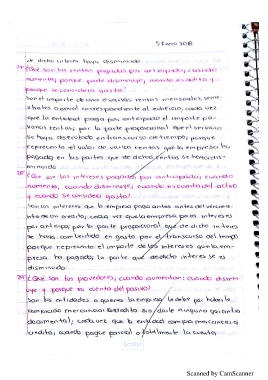 5 Enero 2018
de dicho interés haya disminuido
27 ¿Qué son las rentas pagadas por anticipado; cuando
aumenta; porque parte disminuye; cuando es activo y
porque se considera gasto?
Son el importe de una o varias rentas mensuales, seme
strales o anual correspondiente al edificio, cada vez
que la entidad paga por anticipado el importe pa
varias rentas, por la parte proporcional que el servicio
se haya devengado en transcurso del tiempo; porque
representa el valor de varias rentas que la empresa ha
pagado en las partes que de dichas rentas se haya dis-
minuido
28 ¿Que son los intereses pagados por anticipados; cuando
aumenta, cuando disminuye; cuando es cuenta del activo
y cuando se considera gasto?
Son los intereses que la empresa paga antes del vencimi
ento de un credito; cada vez que la empresa paga intereses
por anticipo; por la parte proporcional que de dicho interes
se haya convertido en gasto por el transcurso del tiempo
porque representa el importe de los intereses que la em-
presa ha pagado; la parte que de dicho interes se es
disminuido.
29 ¿Que son los proveedores; cuando aumentan; cuando dismin
uye y porque es cuenta del pasivo?
Son las entidades a quienes la empresa le debe por haberle
comprado mercancías a credito sin darle ninguna garantía
documental; cada vez que la entidad compra mercancías a
credito; cuando pague parcial o totalmente la cuenta
Scribe
Scanned by CamScanner